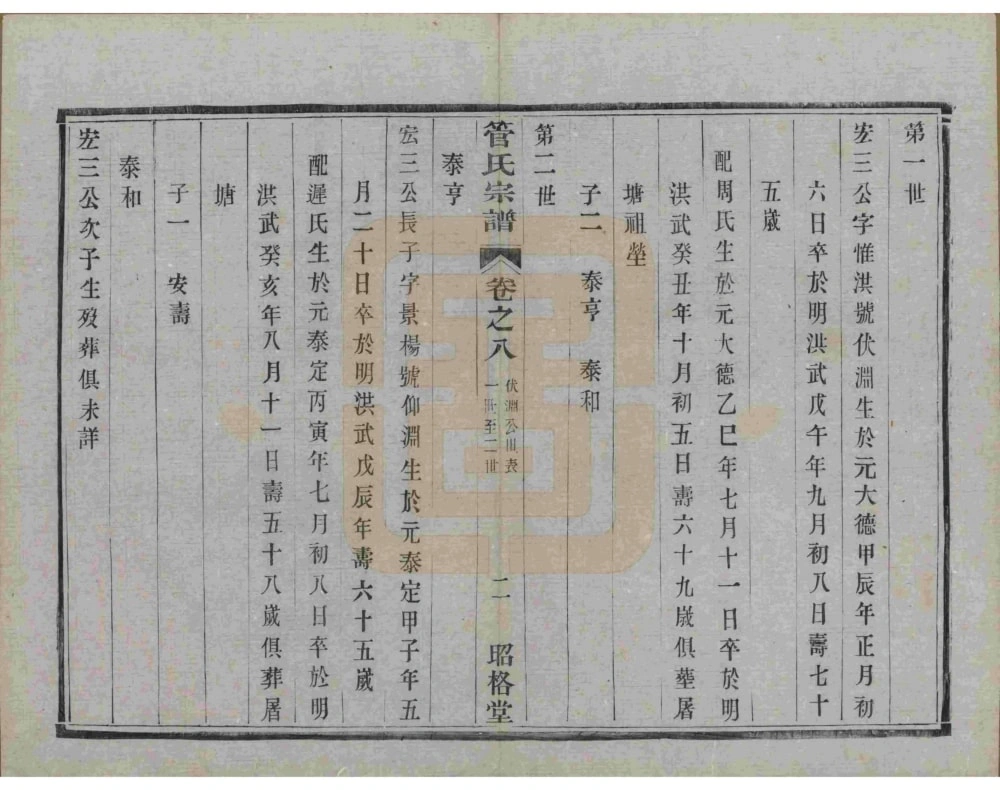 第一世
宏三公字惟淇號伏淵生於元大德甲辰年正月初
六日卒於明洪武戊午年九月初八日壽七十
五歲
配周氏生於元大德乙巳年七月十一日卒於明
洪武癸丑年十月初五日壽六十九歲俱葬屠
塘祖塋
子二　泰亨　泰和
第二世
管氏宗譜　卷之八　伏淵公世表
一世至二世　二　昭格堂
泰亨
宏三公長子字景楊號仰淵生於元泰定甲子年五
月二十日卒於明洪武戊辰年壽六十五歲
配遲氏生於元泰定丙寅年七月初八日卒於明
洪武癸亥年八月十一日壽五十八歲俱葬屠
塘
子一　安壽
泰和
宏三公次子生歿葬俱未詳